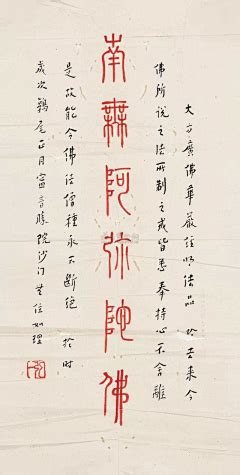 大方廣佛華嚴經明法品 於去來今
佛所說之法所制之戒皆悉奉持心不舍離
南無阿弥陀佛
是故能令佛法僧種永不斷絕 於時
歲次鶉尾正月音勝院沙門住如理